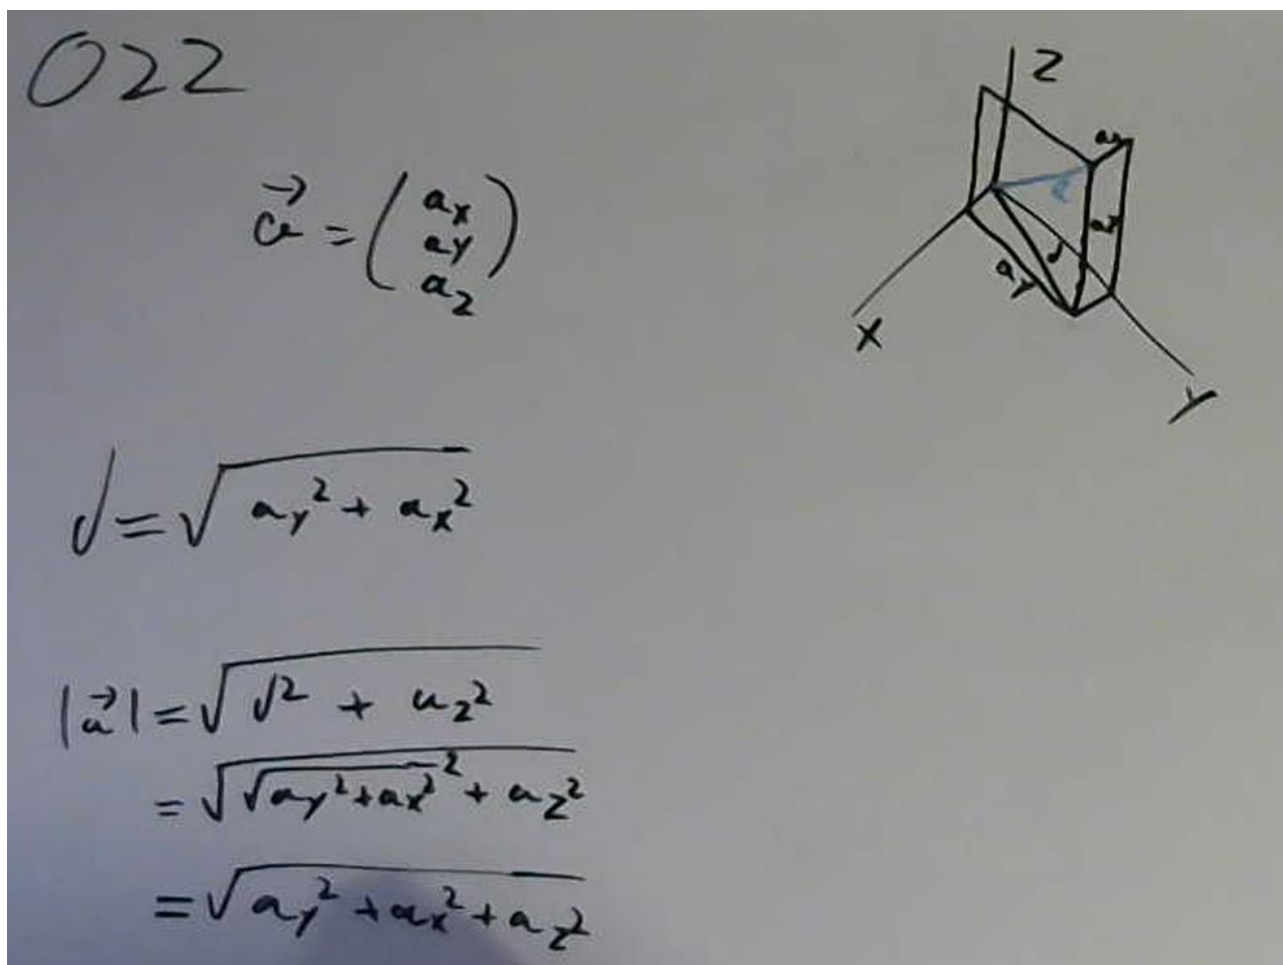 022
Z
a⃗ = (a_x a_y a_z)
a_x
a
d
a_y
X
Y
d = √(a_y² + a_x²)
|a⃗| = √(d² + a_z²)
= √(√(a_y² + a_x²)² + a_z²)
= √(a_y² + a_x² + a_z²)